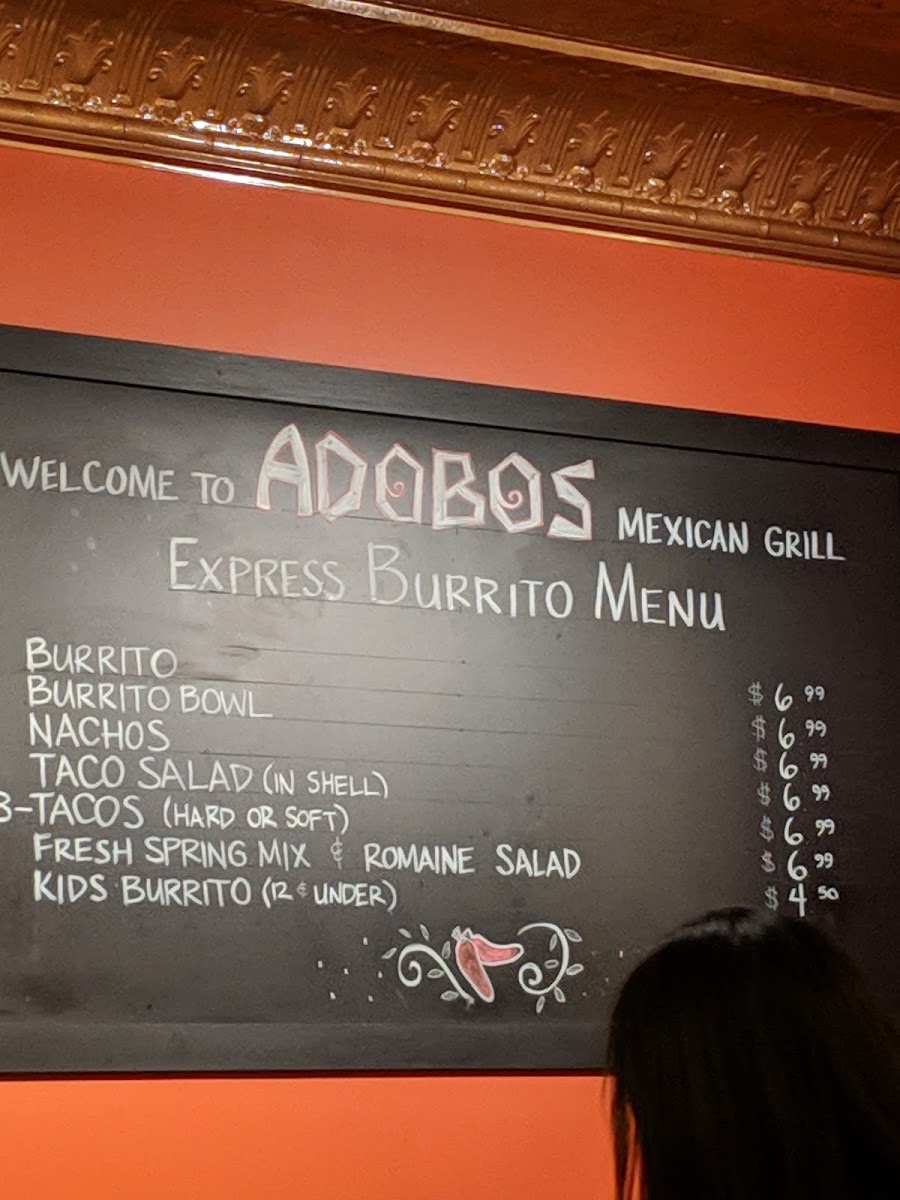 WELCOME TO ADOBOS MEXICAN GRILL
EXPRESS BURRITO MENU
BURRITO $6 99
BURRITO BOWL $6 99
NACHOS $6 99
TACO SALAD (IN SHELL) $6 99
3-TACOS (HARD OR SOFT) $6 99
FRESH SPRING MIX & ROMAINE SALAD $6 99
KIDS BURRITO (12 & UNDER) $4 50